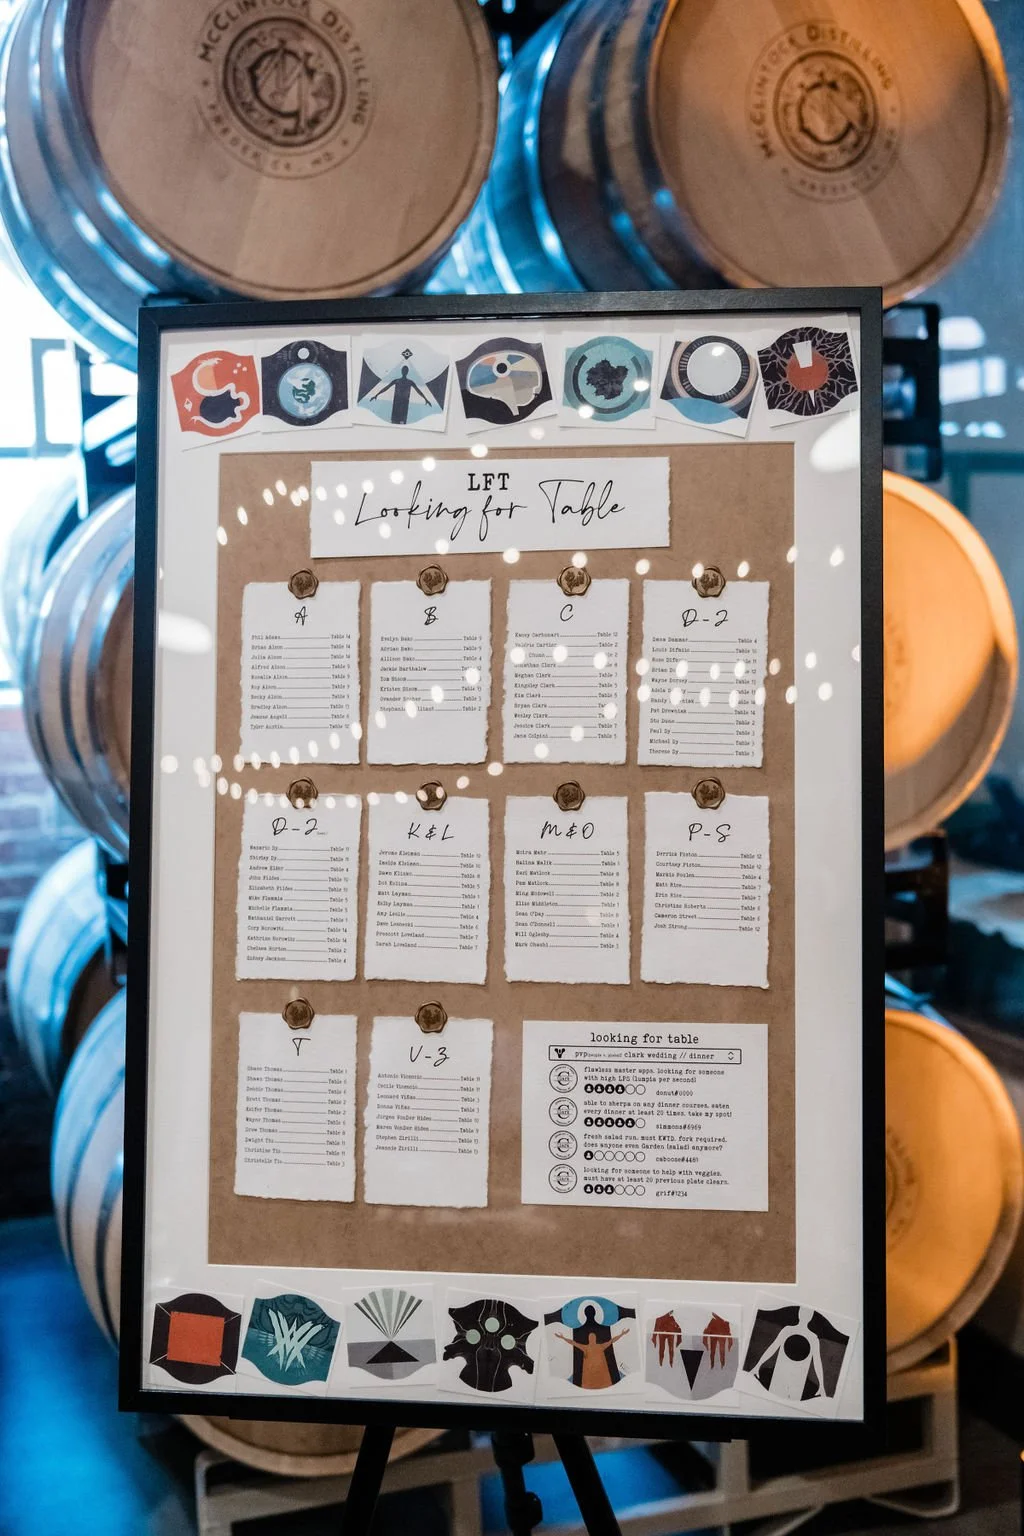 McCLINTOCK DISTILLING
FREDERICK, MD.
McCLINTOCK DISTILLING
LFT
Looking for Table
A
Phil Adams Table 14
Brian Alson Table 14
Julia Alson Table 14
Alfred Alson Table 9
Rosalie Alvin Table 9
Roy Alson Table 9
Becky Alson Table 9
Bradley Alson Table 13
Jeanne Angeli Table 6
Tyler Austin Table 12
B
Evelyn Bako Table 9
Adrian Bako Table 9
Allison Bako Table 4
Jackie Bartholow Table 12
Tom Bloom
Kristen Bloom Table 13
Evander Booher Table 3
Stephanie Table 2
C
Kacey Carbonart Table 12
Valerie Cartier Table 2
Chuan Table 2
Jonathan Clark Table 8
Meghan Clark Table 7
Kingsley Clark Table 5
Kim Clark Table 5
Bryan Clark
Wesley Clark
Jessica Clark Table 7
Jane Culpini Table 5
D-J
Drew Demmar Table 4
Louis DiFazio Table 10
Rose DiFazio Table 11
Brian D
Wayne Dorsey
Adela D
Randy
Pat Drowniak Table 14
Stu Dunn Table 2
Paul Dy Table 3
Michael Dy Table 3
Therese Dy Table 3
D-J
Nazario Dy Table 11
Shirley Dy Table 11
Andrew Elder Table 4
John Fildes Table 10
Elizabeth Fildes Table 10
Mike Flammia Table 5
Michelle Flammia Table 5
Nathaniel Garrott Table 1
Cory Horowitz Table 14
Kathrine Horowitz Table 14
Chelsea Horton Table 2
Sidney Jackson Table 4
K & L
Jerome Kleiman Table 10
Zackie Kleiman Table 10
Dawn Klimko Table 8
Dot Kolins Table 5
Matt Layman Table 1
Kelby Layman Table 1
Amy Leslie Table 4
Dave Lesneski Table 6
Prescott Loveland Table 7
Sarah Loveland Table 7
M & O
Moira Mahr Table 5
Halina Malik Table 1
Karl Matlock Table 8
Pam Matlock Table 8
Ming Mcdowell Table 2
Elise Middleton Table 1
Sean O'Day Table 6
Sean O'Donnell Table 1
Will Oglesby Table 4
Mark Ohashi Table 3
P-S
Derrick Piston Table 12
Courtney Piston Table 12
Markis Poulen Table 4
Matt Rice Table 7
Erin Rice Table 7
Christine Roberts Table 6
Cameron Street Table 6
Josh Strong Table 12
T
Shane Thomas Table 1
Shawn Thomas Table 6
Debbie Thomas Table 6
Brett Thomas Table 2
Kaifer Thomas Table 2
Wayne Thomas Table 6
Drew Thomas Table 8
Dwight Tiu Table 11
Christine Tiu Table 11
Christelle Tiu Table 3
V-Z
Antonio Vicencio Table 11
Cecile Vicencio Table 11
Leonard Viñas Table 3
Donna Viñas Table 3
Jurgen VonDer Hiden Table 10
Maren VonDer Hiden Table 10
Stephen Zirilli Table 13
Jeannie Zirilli Table 13
looking for table
pvp(people v. plates) clark wedding // dinner
flawless master apps. looking for someone
with high LPS (lumpia per second)
donut#0000
able to sherpa on any dinner courses, eaten
every dinner at least 20 times. take my spot!
simmons#6969
fresh salad run. must KWTD. fork required.
does anyone even Garden (salad) anymore?
caboose#4481
looking for someone to help with veggies.
must have at least 20 previous plate clears.
grif#1234